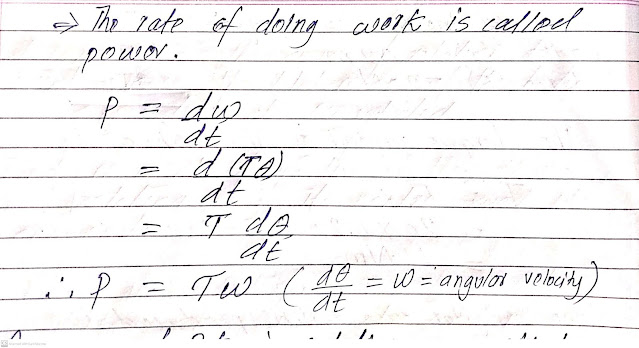 ⇒ The rate of doing work is called
power.
P = dw
dt
= d (Tθ)
dt
= T dθ
dt
∴ P = Tω ( dθ/dt = ω = angular velocity)